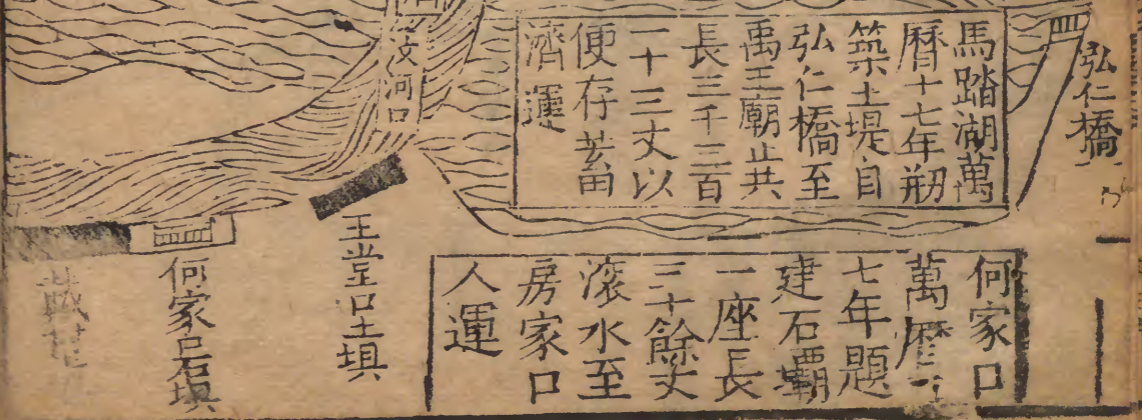 弘仁橋
馬踏湖萬
曆十七年剏
築土堤自
弘仁橋至
禹王廟止共
長三千三百
一十三丈以
便存蓄
濟運
汶河口
何家口
萬曆
七年題
建石壩
一座長
三十餘丈
滚水至
房家口
人運
王堂口土埧
何家口石埧